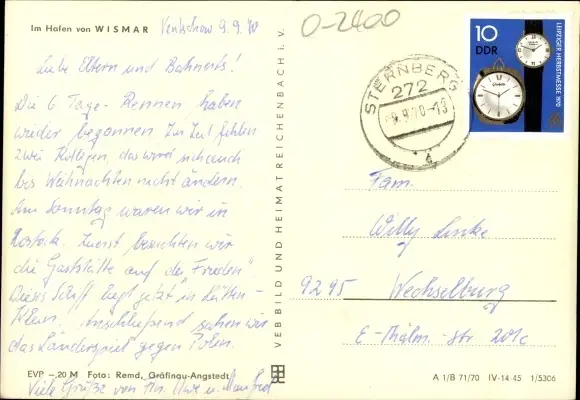 Im Hafen von WISMAR
Ventschow 9.9.70
Liebe Eltern und Bahnerts!
Die 6 Tage-Rennen haben
wieder begonnen. Zur Zeit fehlen
zwei Kollegen, das wird sich auch
bis Weihnachten nicht ändern.
Am Sonntag waren wir in
Rostock. Zuerst besuchten wir
die Gaststätte auf der "Frieden".
Dieses Schiff liegt jetzt in Lütten-
Klein. Anschließend sahen wir
das Länderspiel gegen Polen.
Viele Grüße von u. Manfred
EVP -,20 M Foto: Remd, Gräfinau-Angstedt
VEB BILD UND HEIMAT REICHENBACH i. V.
0-2400
STERNBERG
272
9.9.70-13
4
10
DDR
LEIPZIGER HERBSTMESSE 1970
Fam.
Willy Linke
9295 Wechselburg
E-Thälm.-Str 201c
A 1/B 71/70 IV-14-45 1/5306